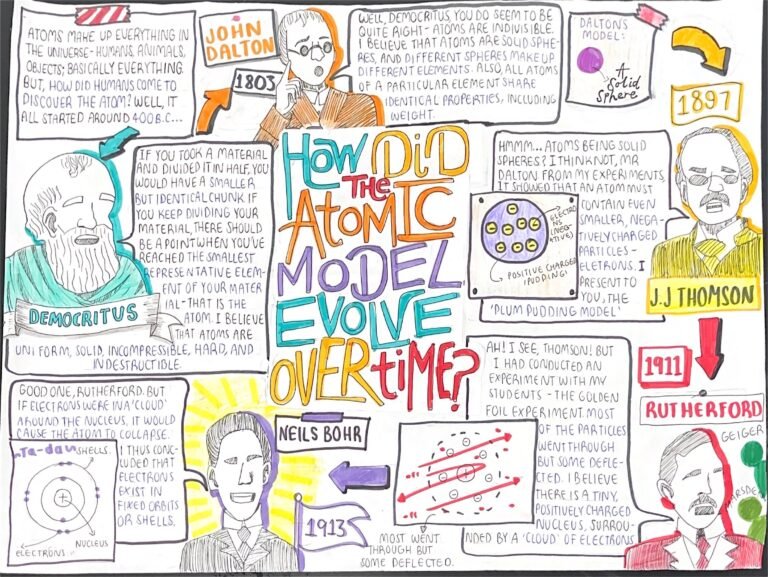 ATOMS MAKE UP EVERYTHING IN
THE UNIVERSE- HUMANS, ANIMALS,
OBJECTS; BASICALLY EVERYTHING.
BUT, HOW DID HUMANS COME TO
DISCOVER THE ATOM? WELL, IT
ALL STARTED AROUND 400 B.C...
JOHN
DALTON
1803
WELL, DEMOCRITUS, YOU DO SEEM TO BE
QUITE RIGHT- ATOMS ARE INDIVISIBLE.
I BELIEVE THAT ATOMS ARE SOLID SPHE-
RES, AND DIFFERENT SPHERES MAKE UP
DIFFERENT ELEMENTS. ALSO, ALL ATOMS
OF A PARTICULAR ELEMENT SHARE
IDENTICAL PROPERTIES, INCLUDING
WEIGHT.
DALTON'S
MODEL:
A
Solid
Sphere
1897
IF YOU TOOK A MATERIAL
AND DIVIDED IT IN HALF, YOU
WOULD HAVE A SMALLER
BUT IDENTICAL CHUNK. IF
YOU KEEP DIVIDING YOUR
MATERIAL, THERE SHOULD
BE A POINT WHEN YOU'VE
REACHED THE SMALLEST
REPRESENTATIVE ELEM-
ENT OF YOUR MATER
IAL- THAT IS THE
ATOM. I BELIEVE
THAT ATOMS ARE
UNIFORM, SOLID, INCOMPRESSIBLE, HARD, AND
INDESTRUCTIBLE.
DEMOCRITUS
HOW DID
THE
ATOMIC
MODEL
EVOLVE
OVER TIME?
HMMM... ATOMS BEING SOLID
SPHERES? I THINK NOT, MR
DALTON. FROM MY EXPERIMENTS,
IT SHOWED THAT AN ATOM MUST
CONTAIN EVEN
SMALLER, NEGA-
TIVELY CHARGED
PARTICLES -
ELETRONS. I
PRESENT TO
YOU, THE
'PLUM PUDDING MODEL'
ELECTRO
NS (NEG-
ATIVE)
POSITIVE CHARGE
(PUDDING)
J.J THOMSON
1911
RUTHERFORD
GEIGER
AH! I SEE, THOMSON! BUT
I HAD CONDUCTED AN
EXPERIMENT WITH MY
STUDENTS - THE GOLDEN
FOIL EXPERIMENT. MOST
OF THE PARTICLES
WENT THROUGH
BUT SOME DEFLE-
CTED. I BELIEVE
THERE IS A TINY,
POSITIVELY CHARGED
NUCLEUS, SURROU-
NDED BY A 'CLOUD' OF ELECTRONS
MOST WENT
THROUGH BUT
SOME DEFLECTED.
GOOD ONE, RUTHERFORD. BUT
IF ELECTRONS WERE IN A 'CLOUD'
AROUND THE NUCLEUS, IT WOULD
CAUSE THE ATOM TO COLLAPSE.
I THUS CONC-
LUDED THAT
ELECTRONS
EXIST IN
FIXED ORBITS
OR SHELLS.
Ta-dah
SHELLS.
NUCLEUS
ELECTRONS
NEILS BOHR
1913